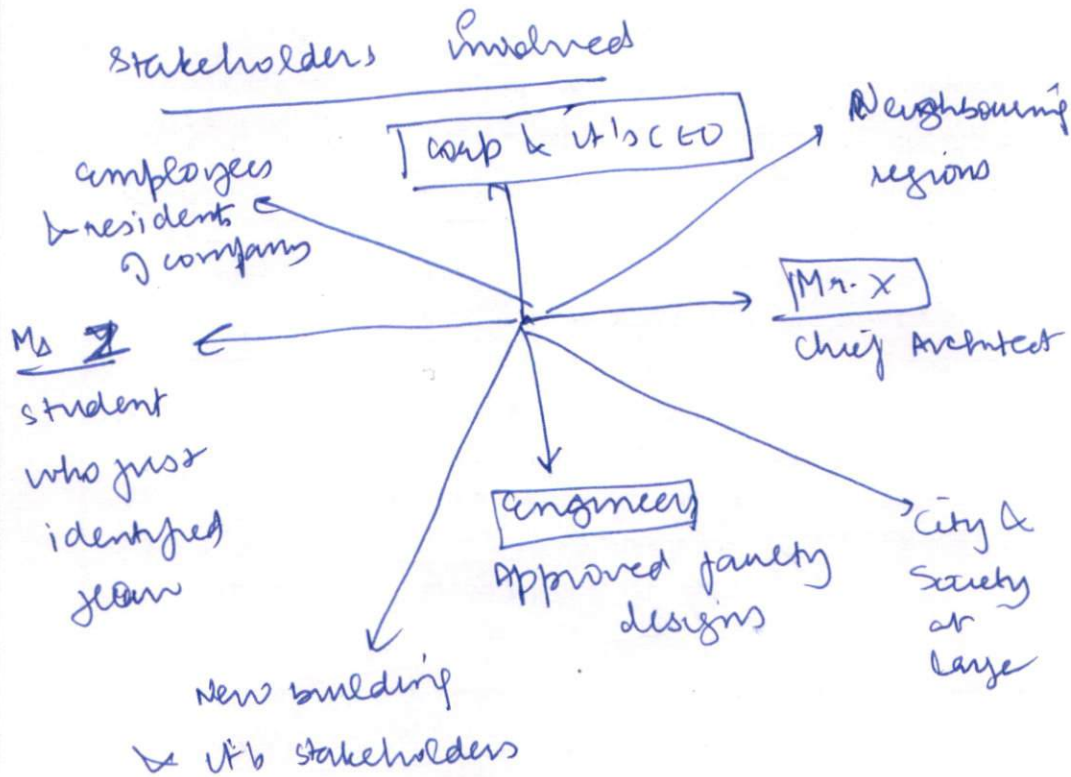 Stakeholders Involved
Corp & it's CEO
Neighbouring
regions
Employees
& residents
of company
Mr. X
Chief Architect
Ms Z
student
who just
identified
flaw
Engineers
Approved faulty
designs
City &
Society
at
large
New building
& its stakeholders